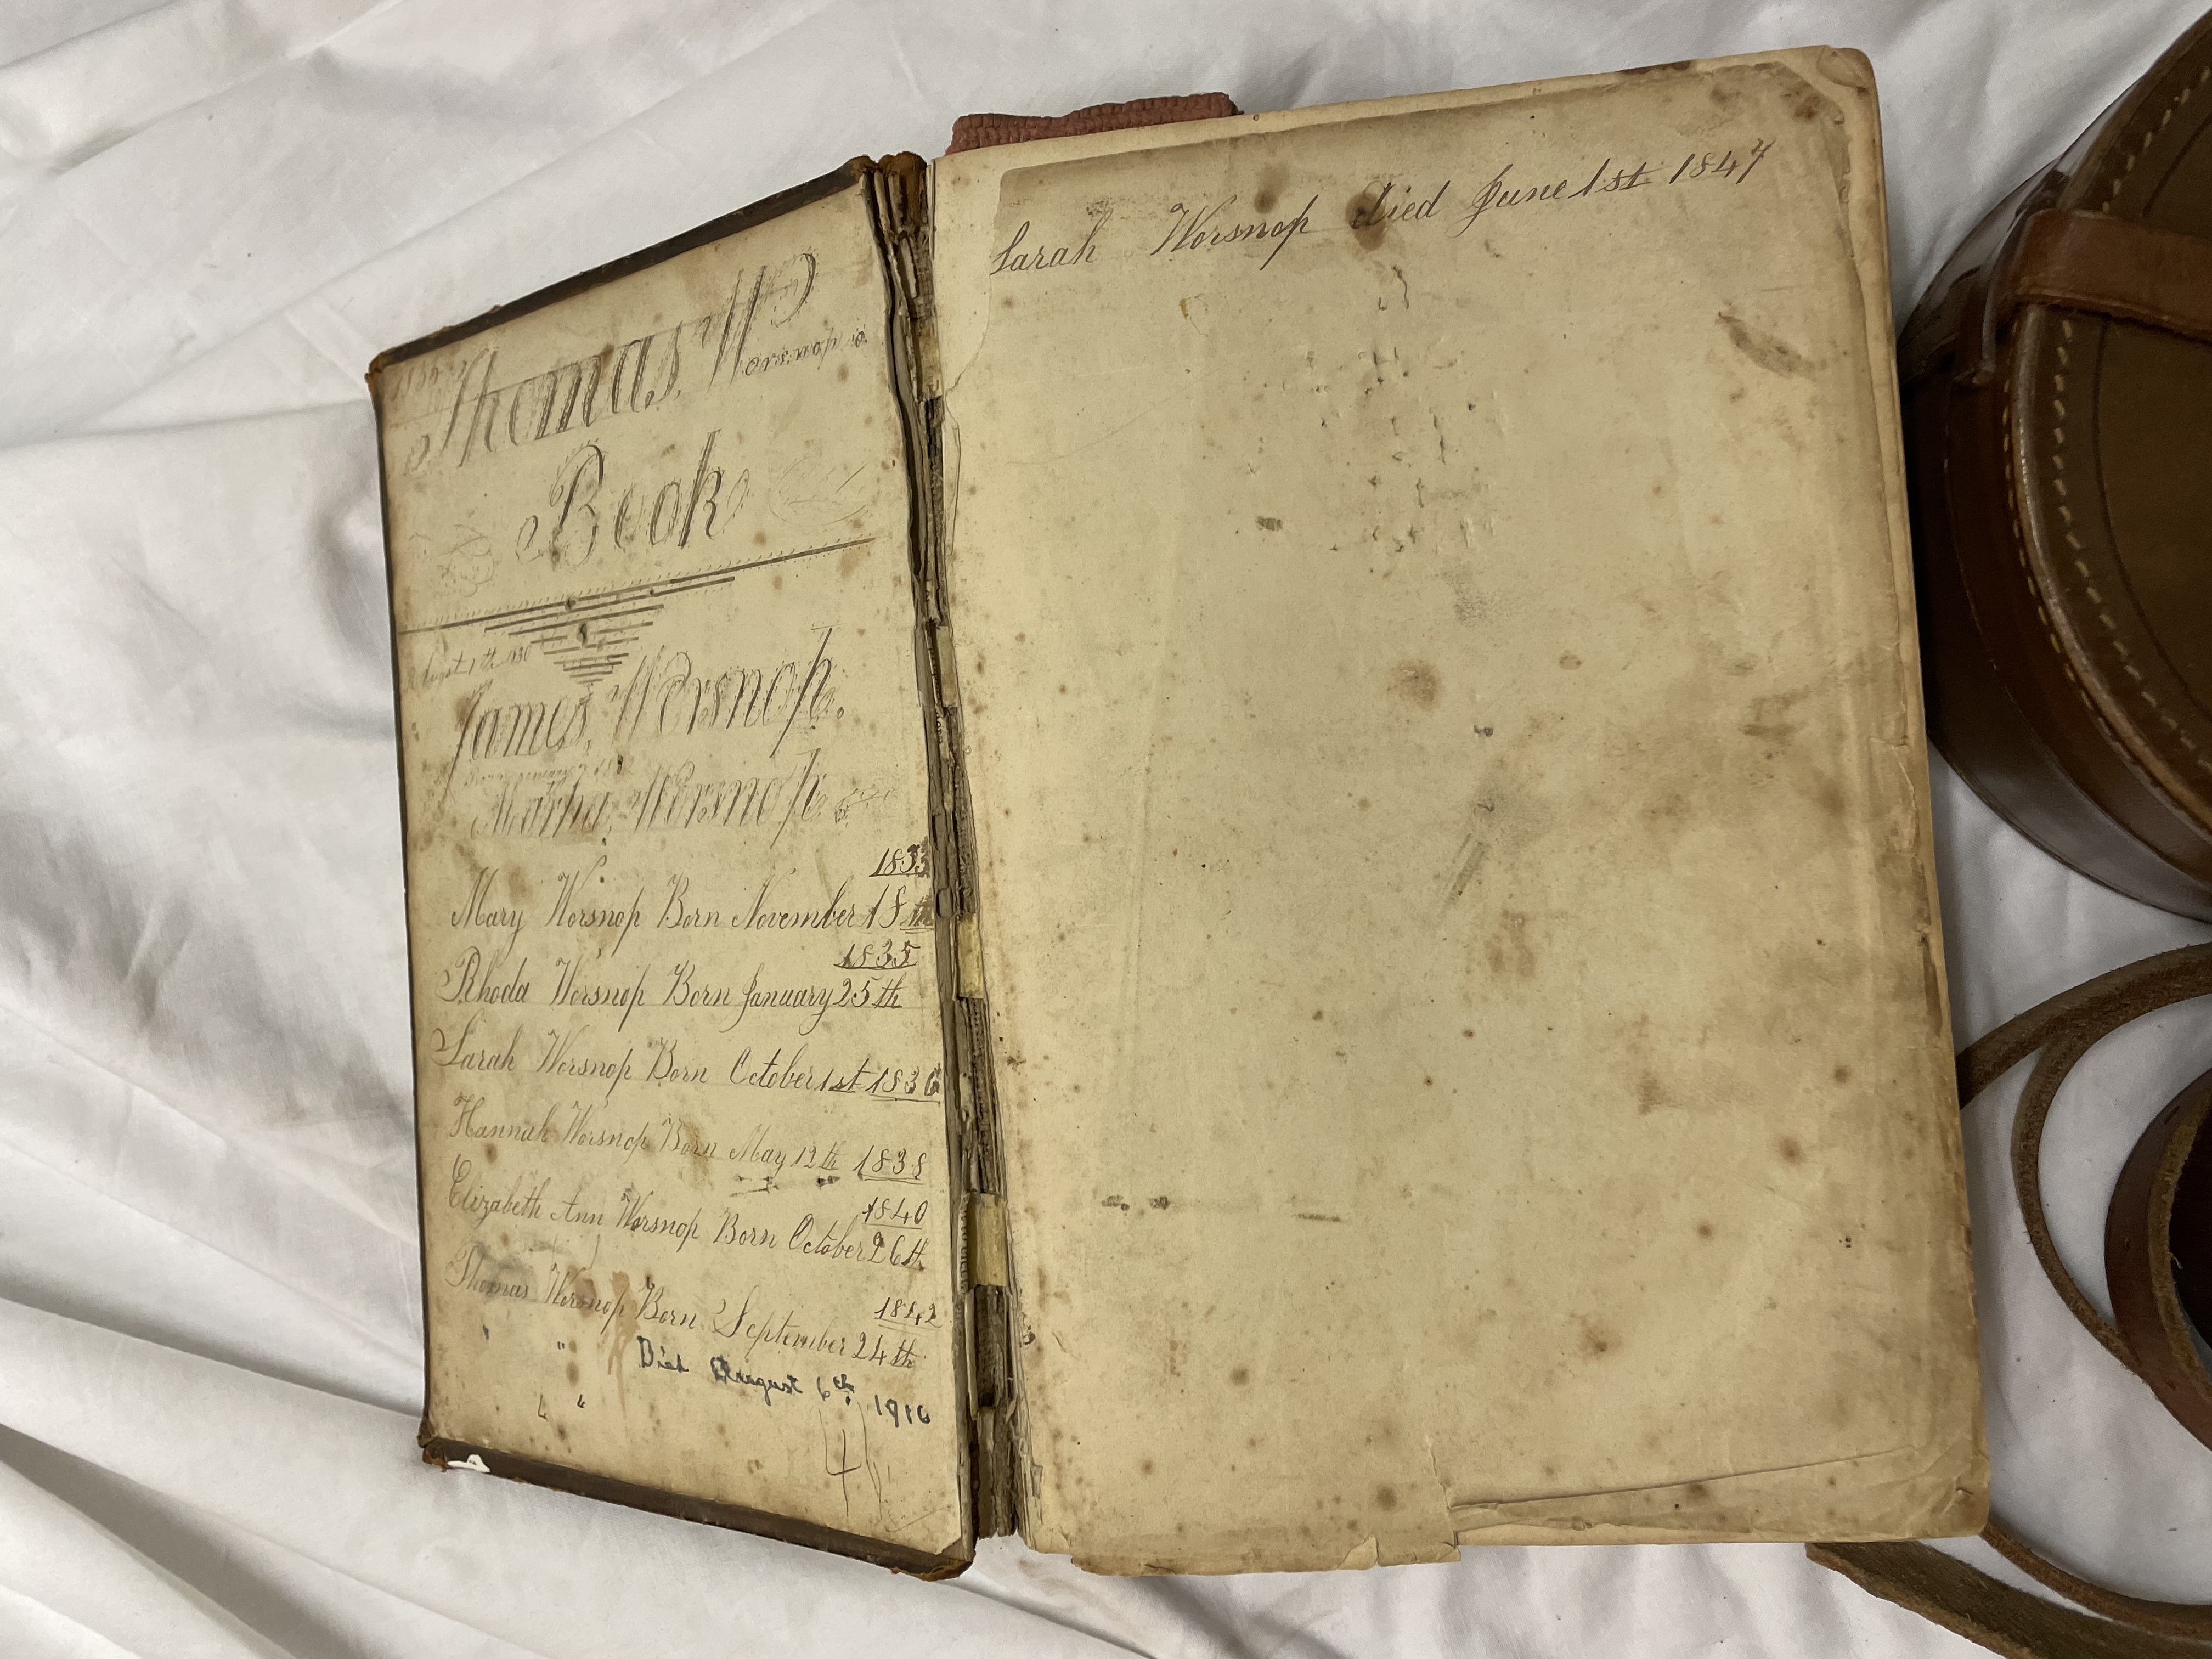 Thomas, W
orsnop
Book
August 1830
James, Worsnop.
Martha, Worsnop
1833
Mary Worsnop Born November 18th
1835
Rhoda Worsnop Born January 25th
Sarah Worsnop Born October 1st 1836
Hannah Worsnop Born May 12th 1838
1840
Elizabeth Ann Worsnop Born October 26th
1842
Thomas Worsnop Born September 24th
" " Died August 6th 1910
" "
Sarah Worsnop died June 1st 1847